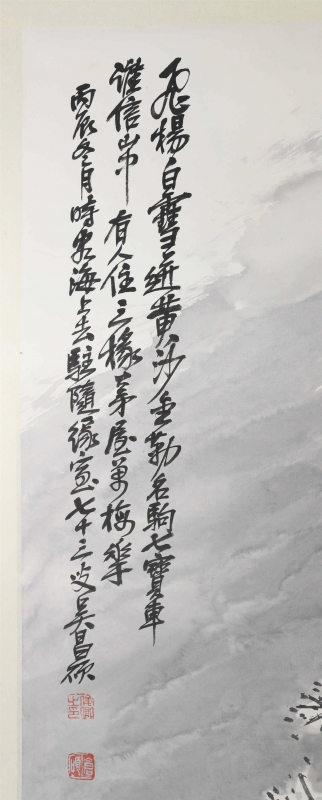 飛楊白雪又斑黃沙金勒名駒七寶車
誰信山中有人住三椽茅屋萬梅花
丙辰冬月時客海上去駐隨緣室七十三叟吳昌碩